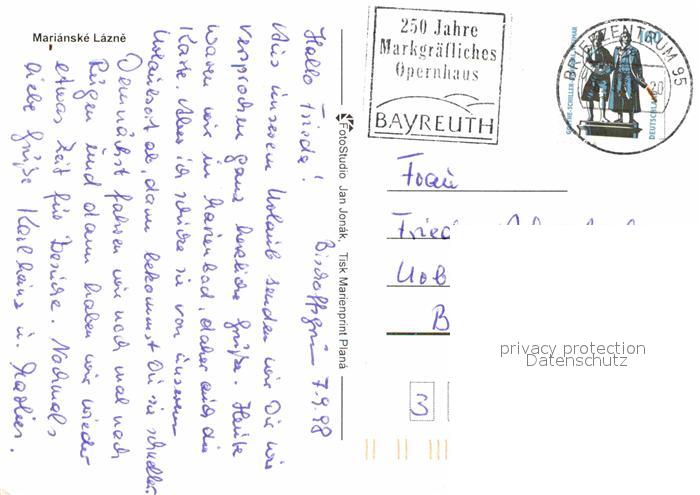 Mariánské Lázně
Bischoffsgrün 7.9.98
Hallo Frieda!
Aus unserem Urlaub senden wir Dir wie
versprochen ganz herzliche Grüße. Heute
waren wir in Marienbad, daher auch die
Karte. Aber ich schicke sie von unserem
Urlaubsort ab, dann bekommst Du sie schneller.
Demnächst fahren wir noch mal nach
Rügen und dann haben wir wieder
etwas Zeit für Besuche. Nochmals
liebe Grüße Karlheinz u.
FotoStudio Jan Jonák, Tisk Marienprint Planá
250 Jahre
Markgräfliches
Opernhaus
BAYREUTH
BRIEFZENTRUM 95
GOETHE-SCHILLER-DENKMAL WEIMAR
DEUTSCHLAND
Frau
Fried
Uob
B
privacy protection
Datenschutz
3